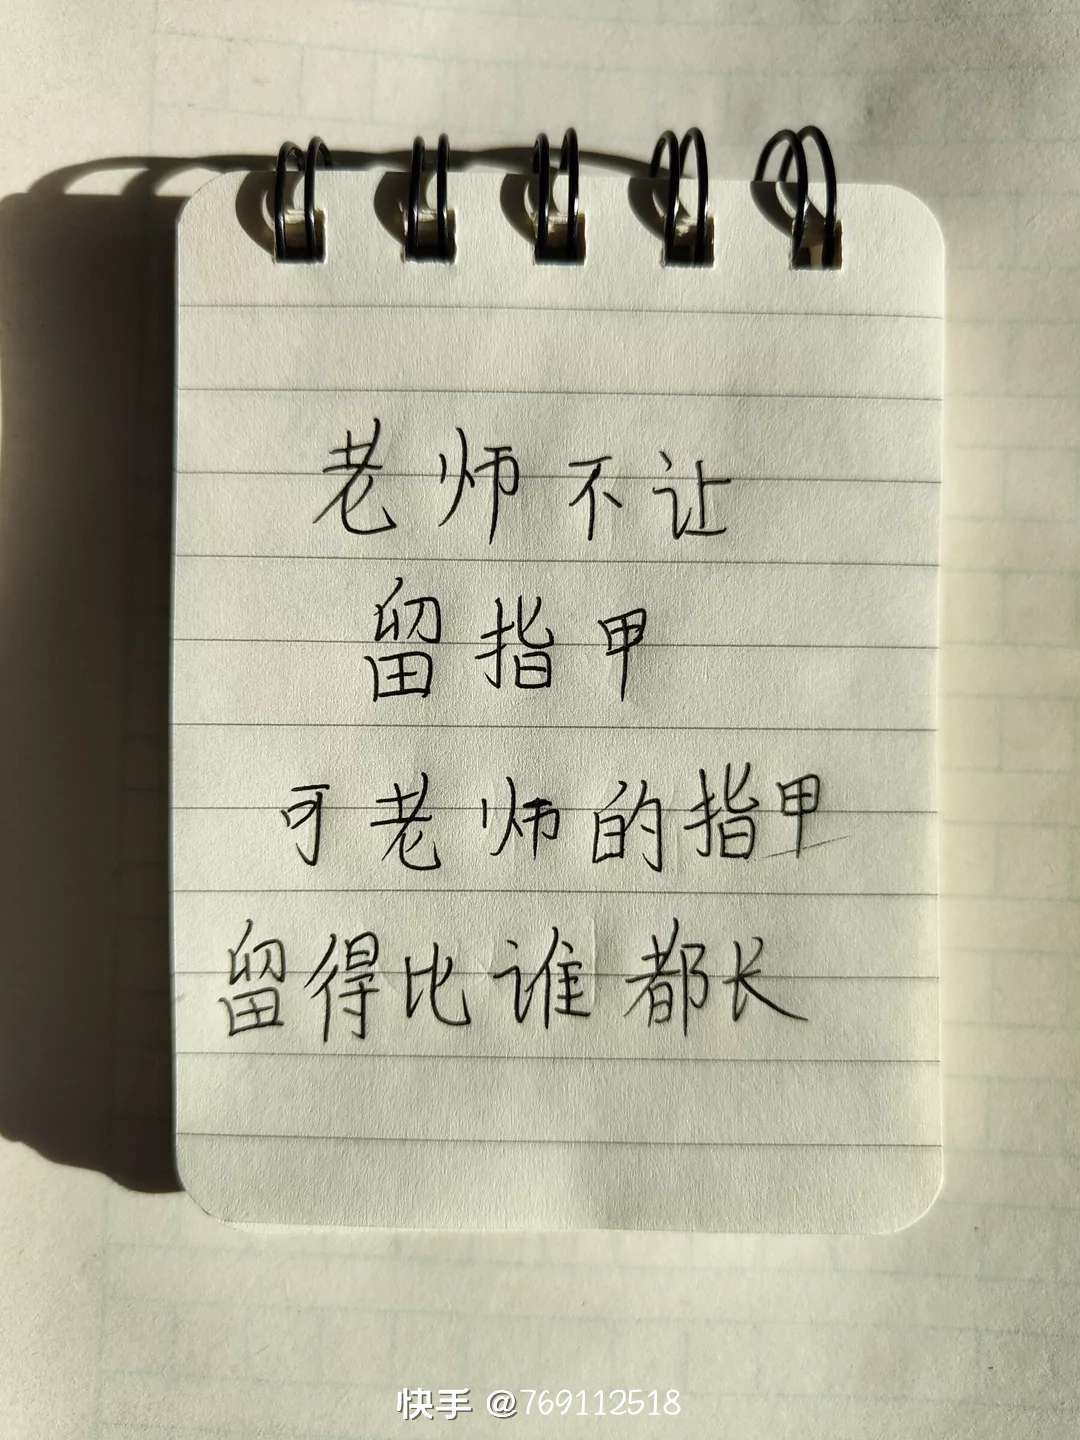 老师不让
留指甲
可老师的指甲
留得比谁都长
快手 @769112518